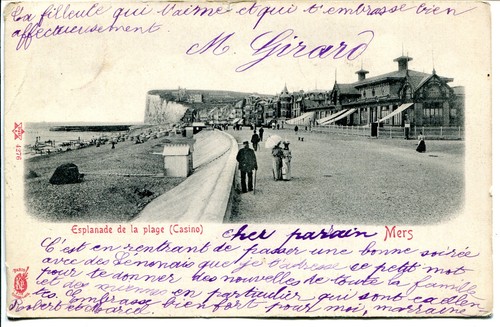 Ta filleule qui t'aime et qui t'embrasse bien
affectueusement
M. Girard
4276
Esplanade de la plage (Casino)
Mers
cher parrain
C'est en rentrant de passer une bonne soirée
avec des que je t'adresse ce petit mot
pour te donner des nouvelles de toute la famille
et des en particulier qui sont
Embrasse bien fort pour moi, marraine
Robert et Marcel.